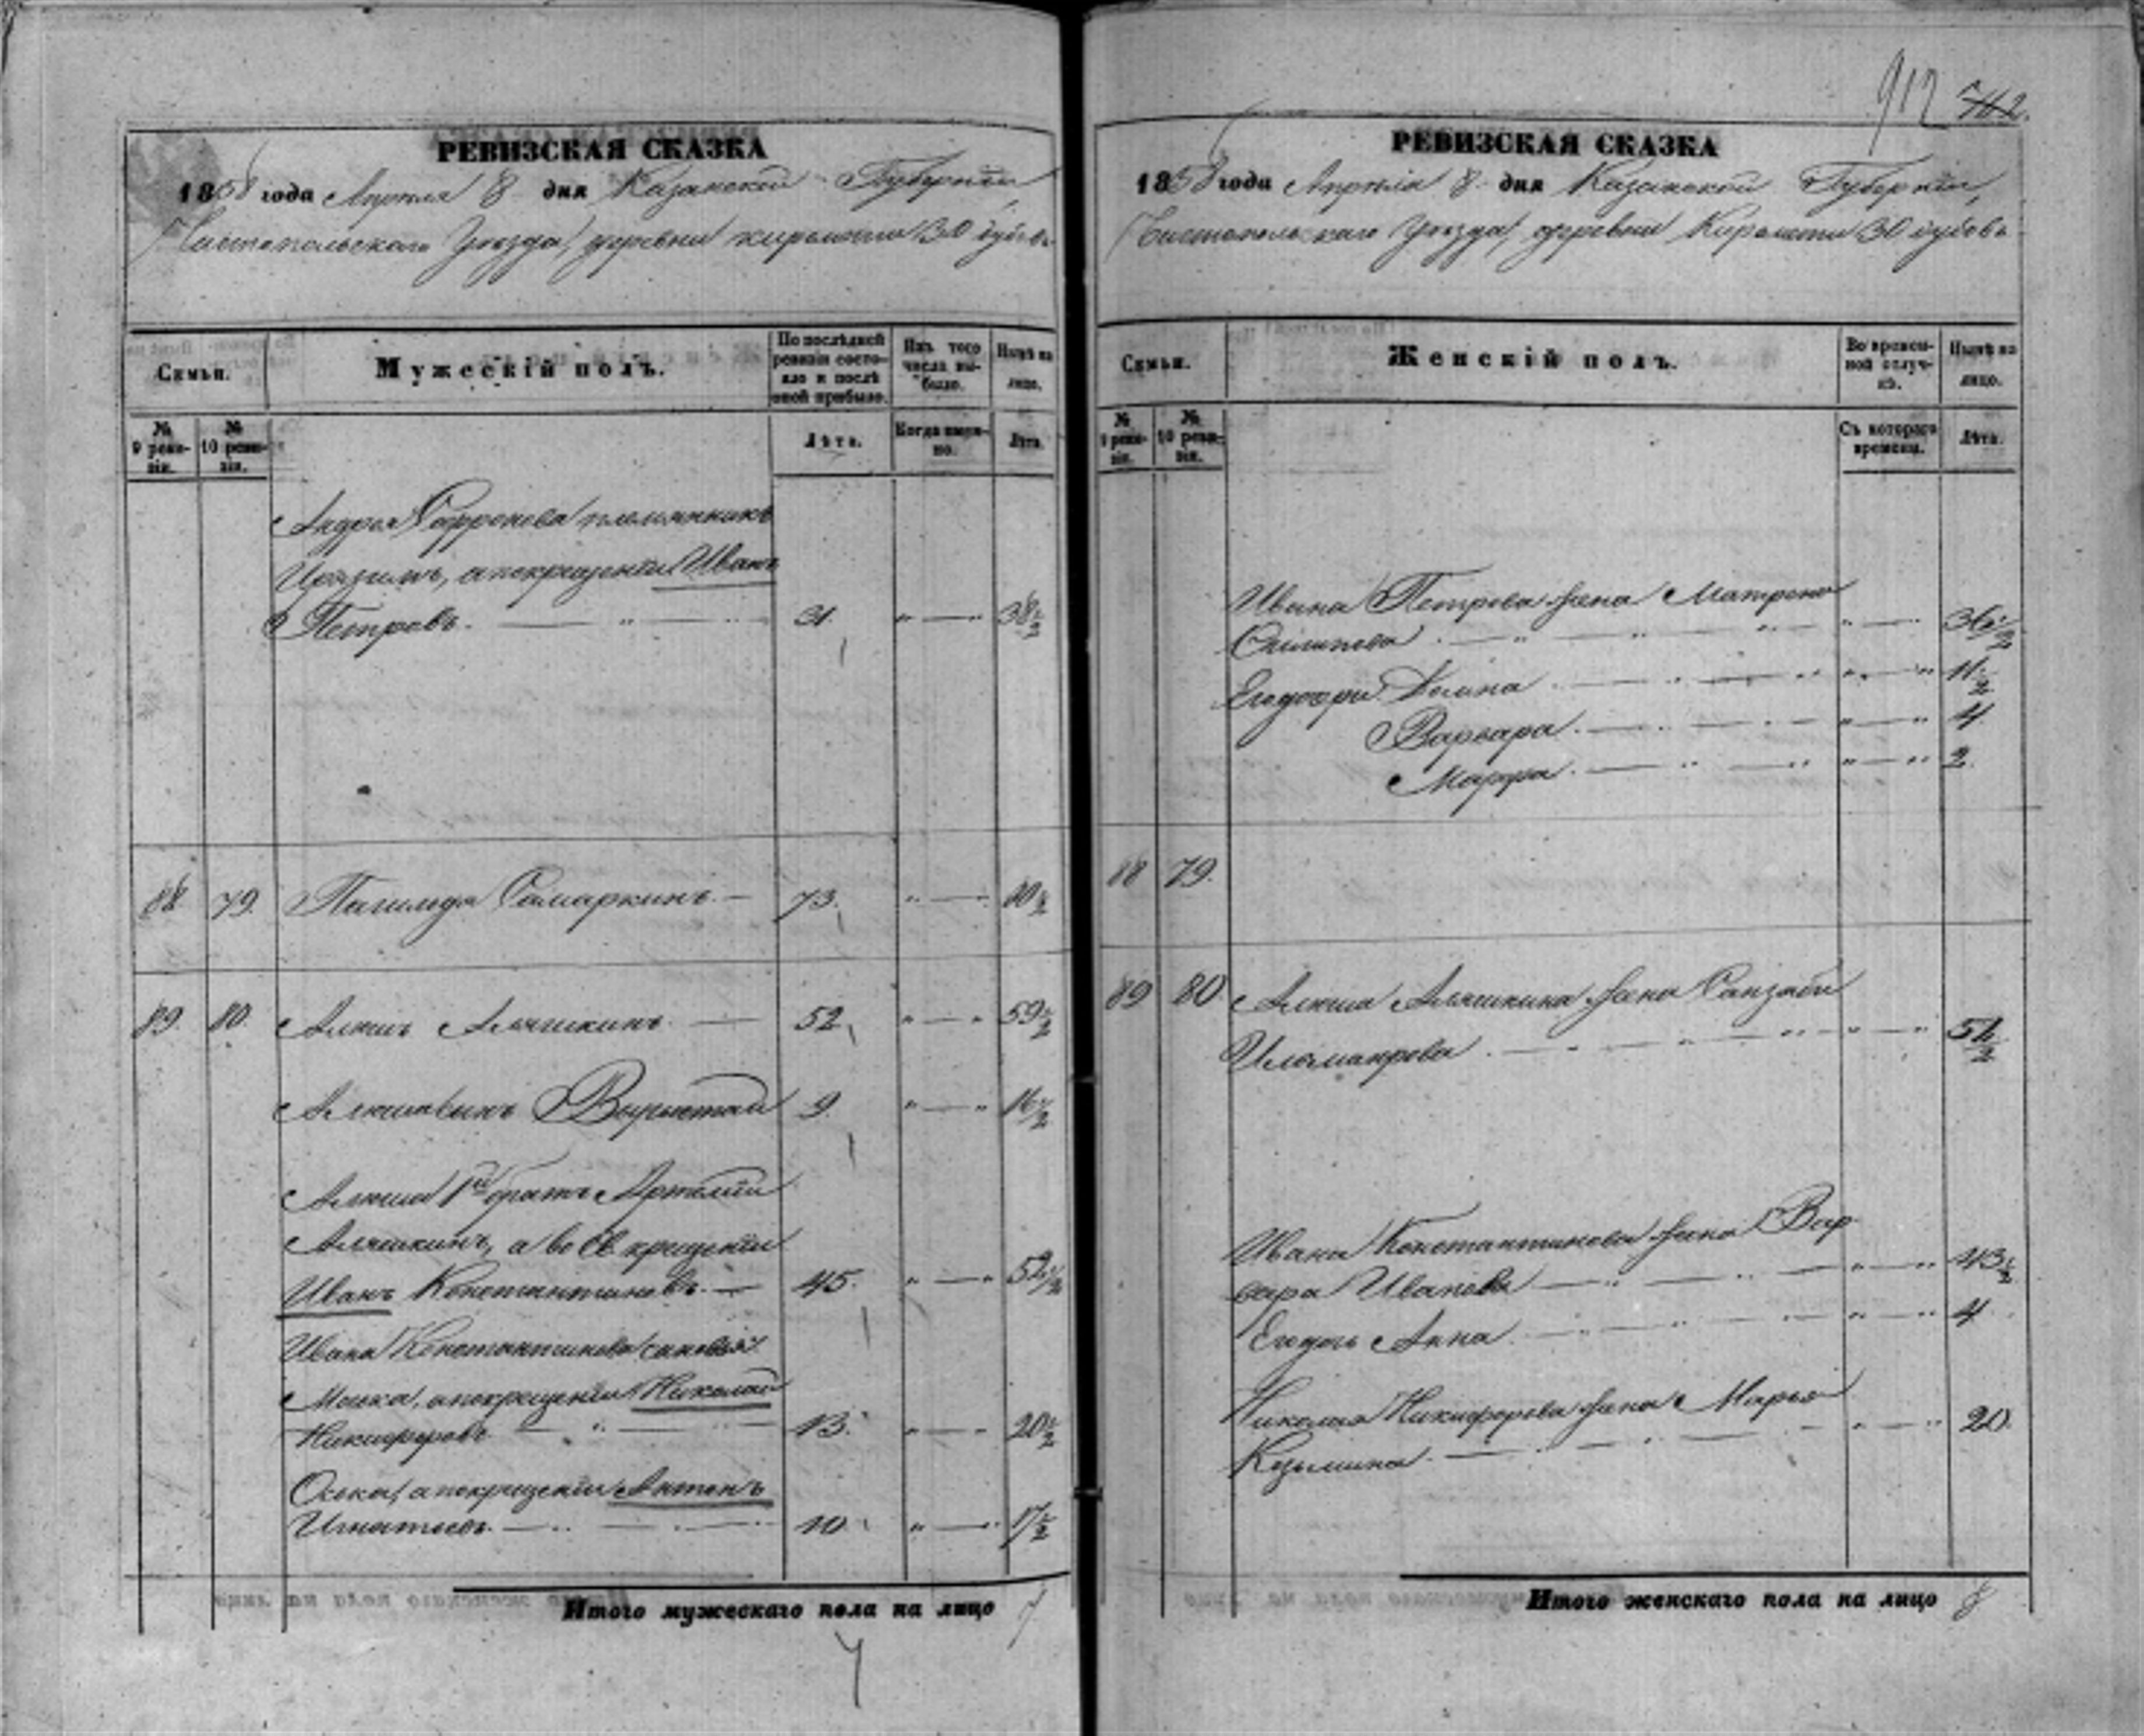 РЕВИЗСКАЯ СКАЗКА
1858 года Апреля 8 дня Казанской Губернии,
Чистопольскаго Уезда, деревни Киремети 30 дубовъ
Семьи.
Мужескій полъ.
По послѣдней ревизіи состояло и послѣ оной прибыло.
Изъ того числа выбыло.
Нынѣ на лицо.
№ 9 ревизіи.
№ 10 ревизіи.
Лѣта.
Когда именно.
Лѣта.
Андрея Сафронова племянникъ
а по крещеніи Иванъ
Петровъ. 31. 38 1/2
88 79. Самаркинъ. 73. 80 1/2
89. 80. Алюшъ Аляшкинъ. 52. 59 1/2
9. 16 1/2
Алюша 1й братъ
Аляшкинъ, а во св. крещеніи
Иванъ Константиновъ. 45. 52 1/2
Ивана Константинова сыновья
а по крещеніи Николай
Никифоровъ 13. 20 1/2
а по крещеніи Антонъ
Игнатьевъ. 10. 17 1/2
Итого мужескаго пола на лицо 7
7
912 712.
РЕВИЗСКАЯ СКАЗКА
1858 года Апреля 8 дня Казанской Губерніи,
Чистопольскаго Уезда, деревни Киремети 30 дубовъ
Семьи.
Женскій полъ.
Во временной отлучкѣ.
Нынѣ на лицо.
№ 9 ревизіи.
№ 10 ревизіи.
Съ котораго времени.
Лѣта.
Ивана Петрова жена Матрена
Филипова. 36 1/2
Его дочери. 11 1/2
Варвара. 4
Марфа. 2.
88 79.
89 80. Алюша Аляшкина жена
51 1/2
Ивана Константинова жена Вар
вара Иванова 43 1/2
Его дочь Анна. 4
Николая Никифорова жена Марья
Козьмина. 20.
Итого женскаго пола на лицо 8